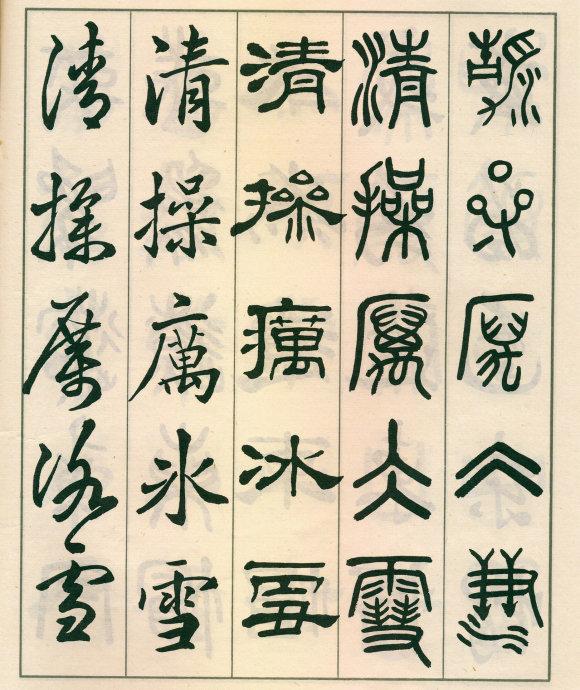 清操厲冰雪
清操厲仌雪
清操癘冰雪
清操厲冰雪
清操厲冰雪